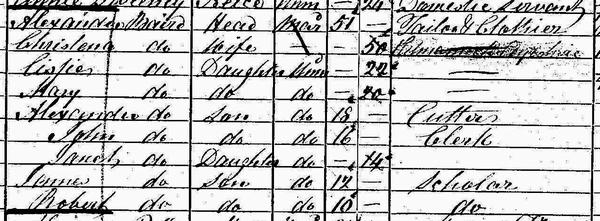 Niece Unm — 24 Domestic Servant
Alexander Baird Head Mar 51 Tailor & Clothier
Christena do Wife — 50
Cissie do Daughter Unm — 22 —
Mary do do do — 20 —
Alexander do Son do 18 — Cutter
John do do do 16 — Clerk
Janet do Daughter do — 14
James do Son do 12 — Scholar
Robert do do do 10 do